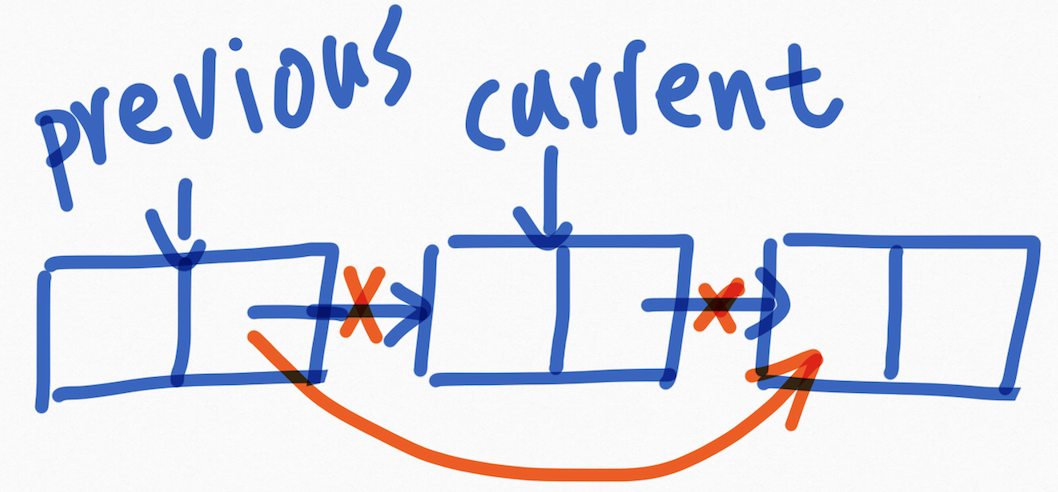 previous current